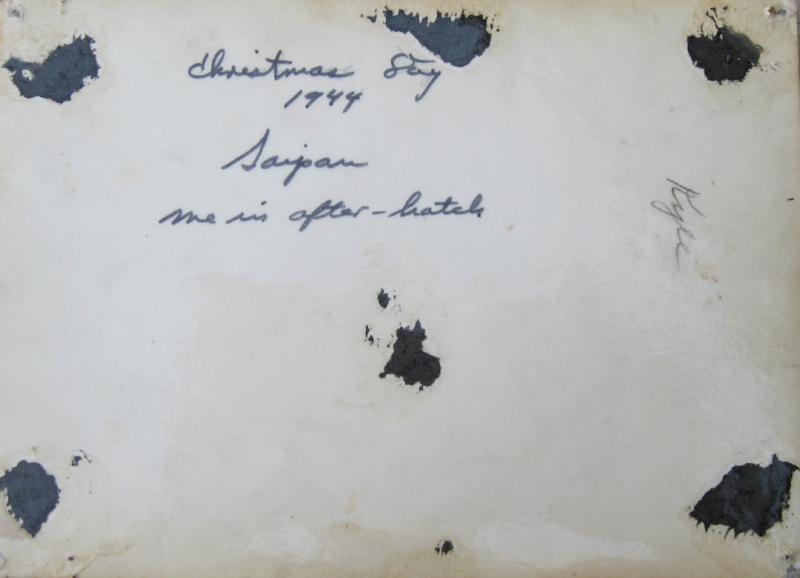 Christmas Day
1944
Saipan
me in after-hatch
Kyle